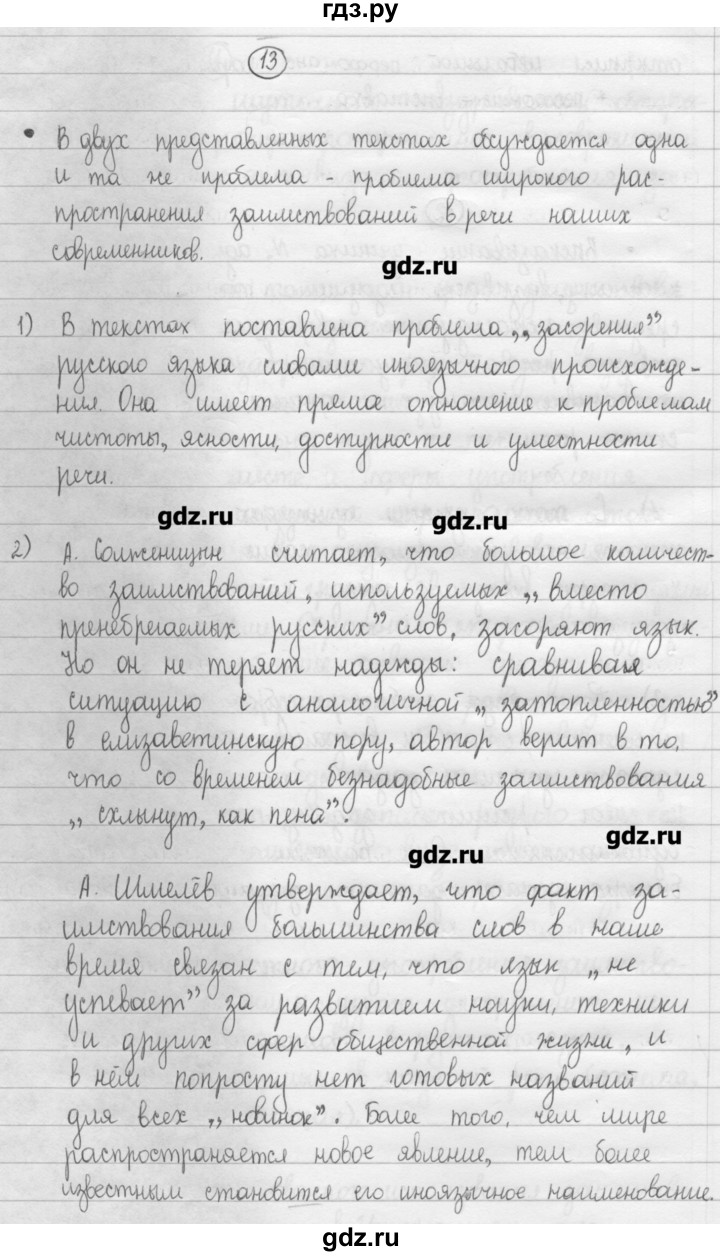 гдз.ру
13
• В двух представленных текстах обсуждается одна
и та же проблема - проблема широкого рас-
пространения заимствований в речи наших
современников.
gdz.ru
1) В текстах поставлена проблема „засорения”
русского языка словами иноязычного происхожде-
ния. Она имеет прямое отношение к проблемам
чистоты, ясности, доступности и уместности
речи.
gdz.ru
gdz.ru
2) А. Солженицын считает, что большое количест-
во заимствований, используемых „вместо
пренебрегаемых русских” слов, засоряют язык.
Но он не теряет надежды: сравнивая
ситуацию с аналогичной „затопленностью”
в елизаветинскую пору, автор верит в то,
что со временем безнадобные заимствования
„схлынут, как пена”.
gdz.ru
gdz.ru
А. Шмелёв утверждает, что факт за-
имствования большинства слов в наше
время связан с тем, что язык „не
успевает” за развитием науки, техники
и других сфер общественной жизни, и
в нём попросту нет готовых названий
для всех „новинок”. Более того, чем шире
распространяется новое явление, тем более
известным становится его иноязычное наименование.
gdz.ru